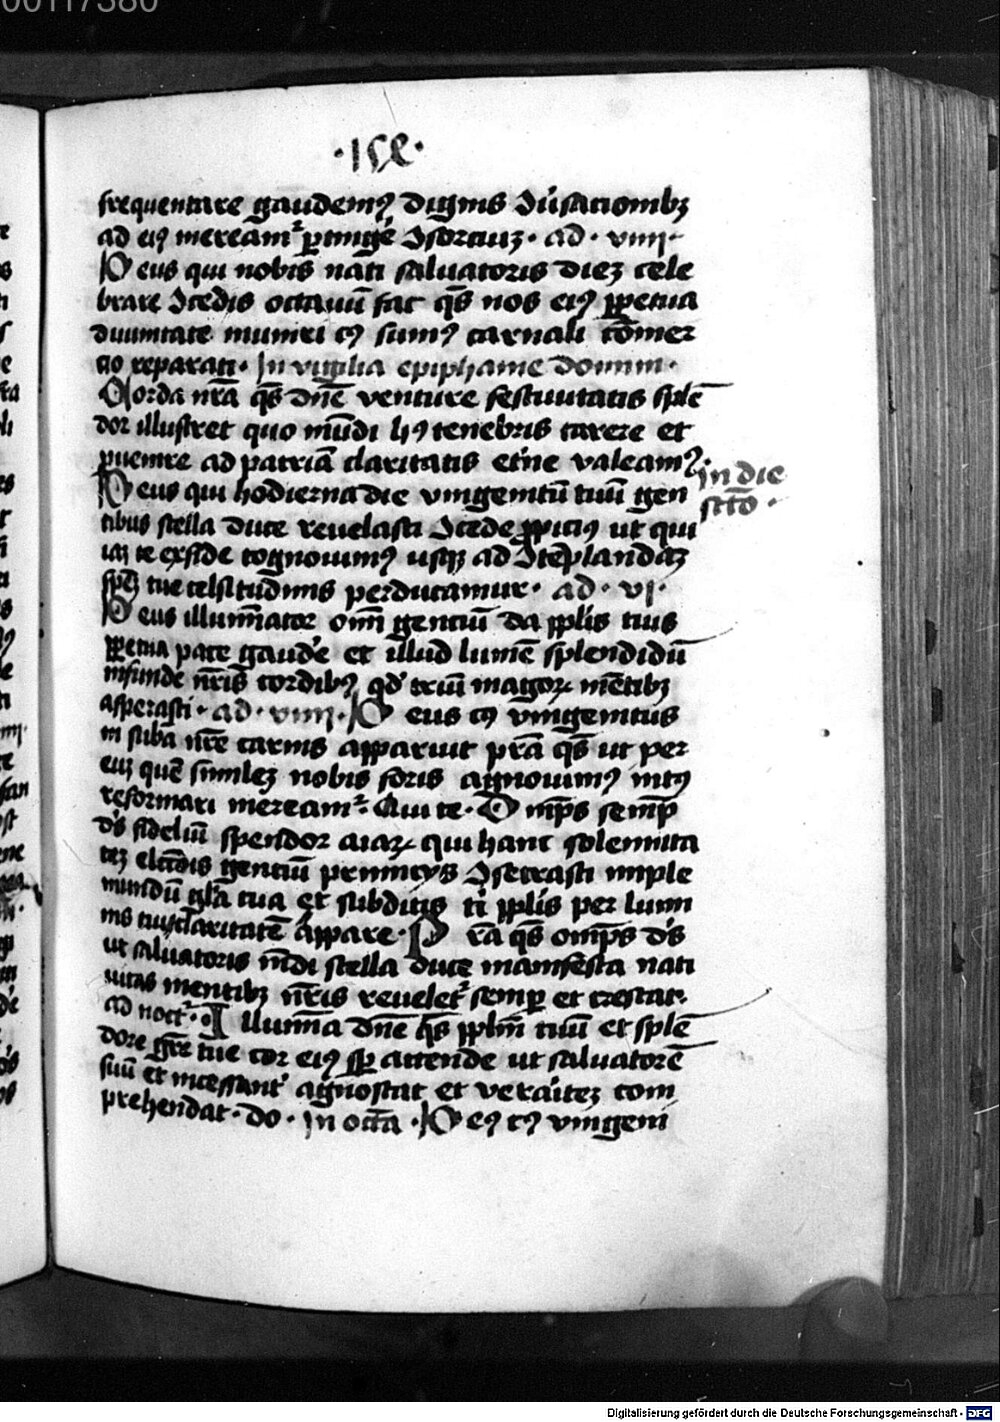 00117380
frequentare gaudemꝰ dignis Ↄuersationibꝫ
ad eiꝰ mereamͬ ꝑtinge̕ Ↄsorciuꝫ · ad · viiij ·
Deus qui nobis nati saluatoris dieꝫ cele
brare Ↄcedis octauū fac qs̄ nos eiꝰ ꝑpetua
diuinitate muniri cꝰ sumꝰ carnali cōmer
cio reparati · In vigilia epiphanie domini ·
Corda nrā qs̄ dnē venture festiuitatis splē
dor illustret quo mūdi hꝰ tenebris carere et
ꝑuenire ad patriā claritatis et̕ne valeamꝰ ·
in die
sctō ·
Deus qui hodierna die vnigenitū tuū gen
tibus stella duce reuelasti Ↄcede ꝓpiciꝰ ut qui
iaꝫ te ex fide cognouimꝰ usqꝫ ad Ↄtēplandaꝫ
speꝫ tue celsitudinis perducamur · ad · vj ·
Deus illumīator oīm gentiū da pp̄lis tuis
ꝑpetua pace gaude̕ et illud lumē splendidū
infunde nr̄is cordibꝰ qd̕ triū magoꝝ mētibꝫ
asperasti · ad · viiij · Deus cꝰ vnigenitus
in sūba nr̄e carnis apparuit prā qs̄ ut per
euꝫ quē simileꝫ nobis foris agnouimꝰ intꝰ
reformari mereamͬ · Qui te · Om̄ps semꝑ
ds̄ fideliū spendor aīaꝝ qui hanc solemnita
teꝫ elcōis gentiū primicys Ↄsecrasti imple
mundū glā tua et subditis ti pp̄lis per lumi
nis tui claritatē appare · Prā qs̄ om̄ps ds̄
ut saluatoris mūdi stella duce manifesta nati
uitas mentibꝫ nr̄is reueletͬ semꝑ et crescat ·
ad noctͬ · Illumīa dnē qs̄ pplm̄ tuū et splē
dore gr̄e tue cor eiꝰ sꝑ accende ut saluatorē
suū et incessant̕ agnoscat et veraciteꝫ com
prehendat · do · In octā · Deꝰ cꝰ vnigeni
Digitalisierung gefördert durch die Deutsche Forschungsgemeinschaft - DFG